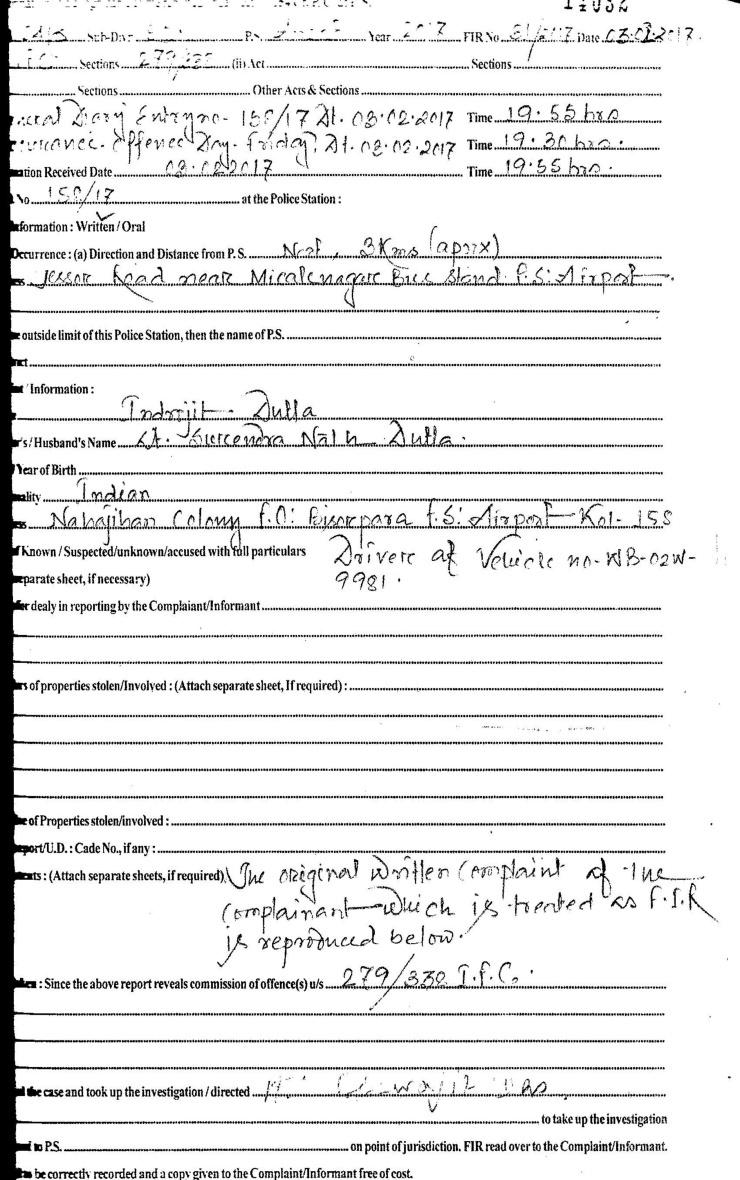 Sub-Div P.S. Year 2017 FIR No. 81/2017 Date 03.02.2017
Sections 279/338 (ii) Act Sections
Sections Other Acts & Sections
Diary Entry no- 158/17 Dt. 03.02.2017 Time 19.55 hrs
offence Day- Friday, Dt. 03.02.2017 Time 19.30 hrs.
ation Received Date 03.02.2017 Time 19.55 hrs.
No 158/17 at the Police Station :
nformation : Written / Oral
Occurrence : (a) Direction and Distance from P.S. 3Kms (aprx)
Jessor Road near Micalenagar Bus Stand P.S: Airport
outside limit of this Police Station, then the name of P.S.
/ Information :
Indrajit Dutta
's / Husband's Name Lt. Surendra Nath Dutta.
Year of Birth
ality Indian
Colony P.O: Bisarpara P.S: Airport Kol- 158
f Known / Suspected/unknown/accused with full particulars Driver of Vehicle no- WB-02W-
eparate sheet, if necessary) 9981.
for dealy in reporting by the Complaiant/Informant
rs of properties stolen/Involved : (Attach separate sheet, If required) :
e of Properties stolen/involved :
eport/U.D. : Cade No., if any :
ents : (Attach separate sheets, if required) The original written Complaint of the
Complainant which is treated as F.I.R
is reproduced below.
: Since the above report reveals commission of offence(s) u/s 279/338 I.P.C.
d the case and took up the investigation / directed Das
to take up the investigation
to P.S. on point of jurisdiction. FIR read over to the Complaint/Informant.
be correctly recorded and a copy given to the Complaint/Informant free of cost.